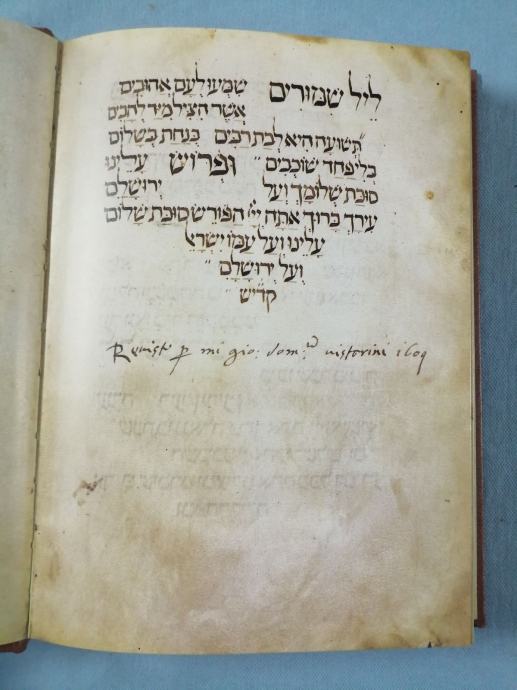 לֵיל שִׁמּוּרִים שִׁמְעוּ לְעַם אֲהוּבִים
אֲשֶׁר הִצִּיל מִיַּד לְהָבִים
תְּשׁוּעָה הִיא לְבַת רַבִּים בְּנַחַת בְּשָׁלוֹם
בְּלִי פַחַד שׁוֹכְבִים וּפְרוֹשׂ עָלֵינוּ
סוּכַּת שְׁלוֹמֶךָ וְעַל יְרוּשָׁלַם
עִירָךְ בָּרוּךְ אַתָּה ייי הַפּוֹרֵשׂ סוּכַּת שָׁלוֹם
עָלֵינוּ וְעַל עַמּוֹ יִשְׂרָאֵל
וְעַל יְרוּשָׁלַם
קדיש
Revist p mi gio: dom.co vistorini 1609